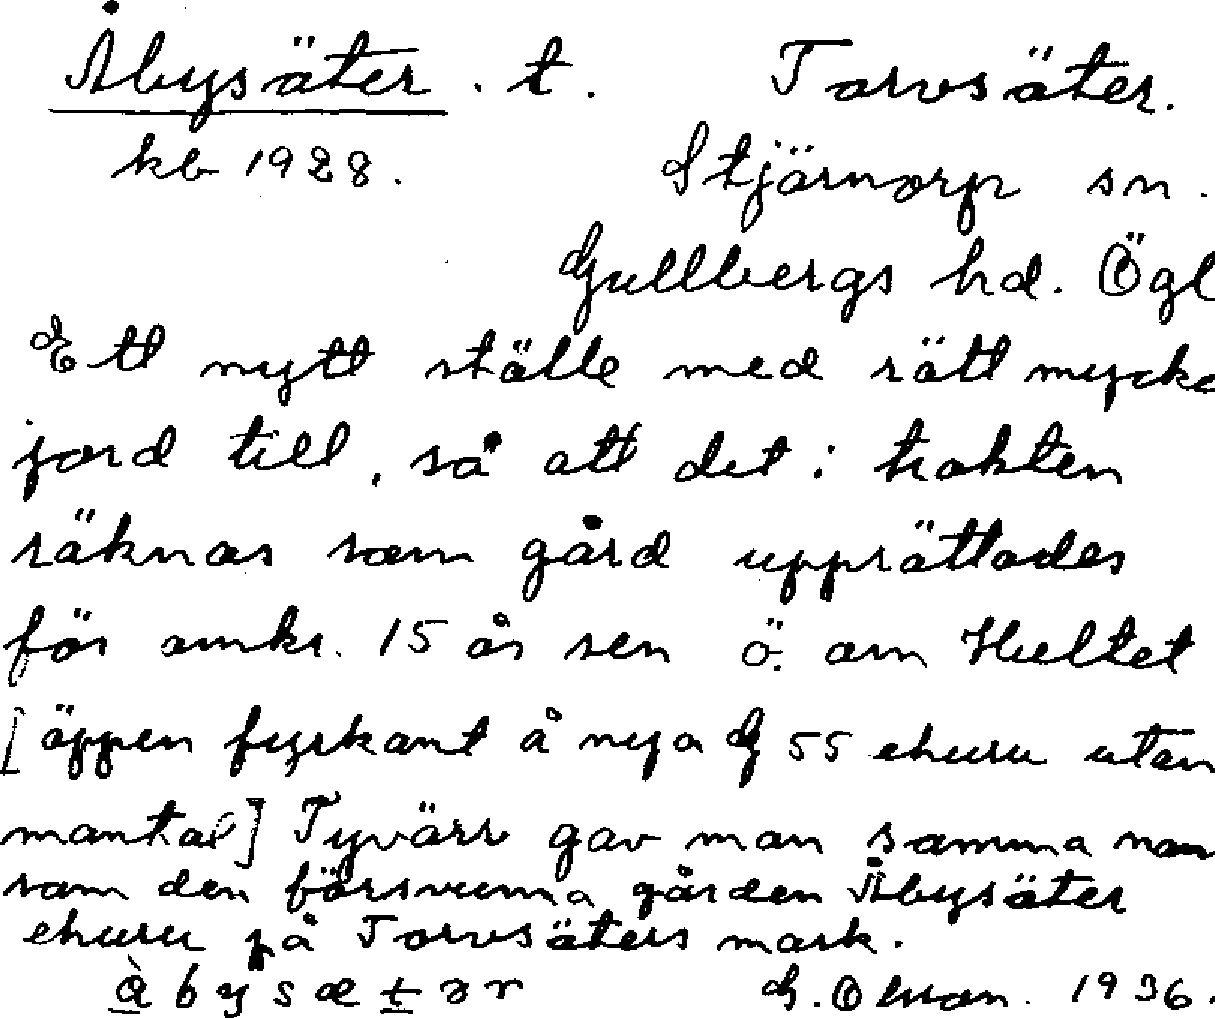 Åbysäter . t . Torvsäter.
kb 1928. Stjärnorp sn.
Gullbergs hd. Ögl
Ett nytt ställe med rätt mycke
jord till, så att det i trakten
räknas som gård upprättades
för omkr. 15 år sen ö. om Hultet
[öppen fyrkant å nya G 55 ehuru utan
mantal] Tyvärr gav man samma nam
som den försvunna gården Åbysäter
ehuru på Torvsäters mark.
G. 1936.